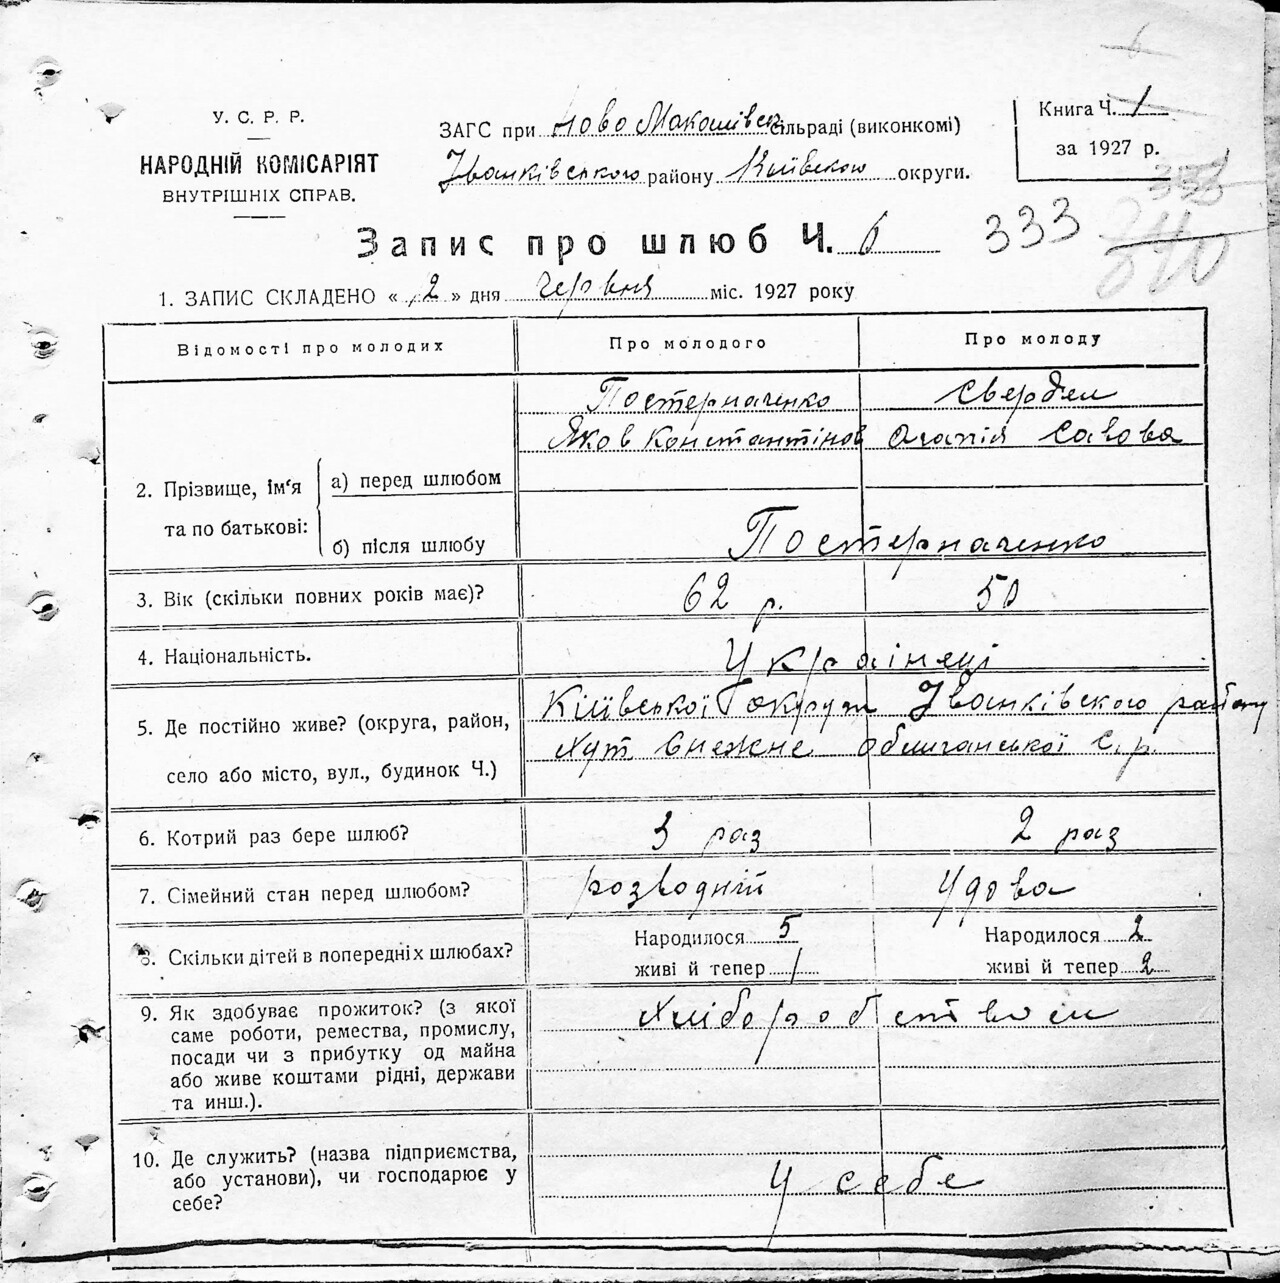 У. С. Р. Р.
НАРОДНІЙ КОМІСАРІЯТ
ВНУТРІШНІХ СПРАВ.
ЗАГС при Ново Макалівск сільраді (виконкомі)
Іванківського району Київскою округи.
Книга Ч. 1
за 1927 р.
333
Запис про шлюб Ч. 6
333
340
1. ЗАПИС СКЛАДЕНО « 2 » дня червня міс. 1927 року
Відомості про молодих
Про молодого
Про молоду
2. Прізвище, ім'я та по батькові:
а) перед шлюбом
Постерначенко
Яков Константінов
Свердел
Агапія Савова
б) після шлюбу
Постерначенко
3. Вік (скільки повних років має)?
62 р.
50
4. Національність.
Українці
5. Де постійно живе? (округа, район,
село або місто, вул., будинок Ч.)
Київської округи Іванківского району
Хут Снежне с. р.
6. Котрий раз бере шлюб?
3 раз
2 раз
7. Сімейний стан перед шлюбом?
розводній
Удова
8. Скільки дітей в попередніх шлюбах?
Народилося 5
живі й тепер 1
Народилося 2
живі й тепер 2
9. Як здобуває прожиток? (з якої
саме роботи, ремества, промислу,
посади чи з прибутку од майна
або живе коштами рідні, держави
та инш.).
Хліборобством
10. Де служить? (назва підприємства,
або установи), чи господарює у
себе?
У себе